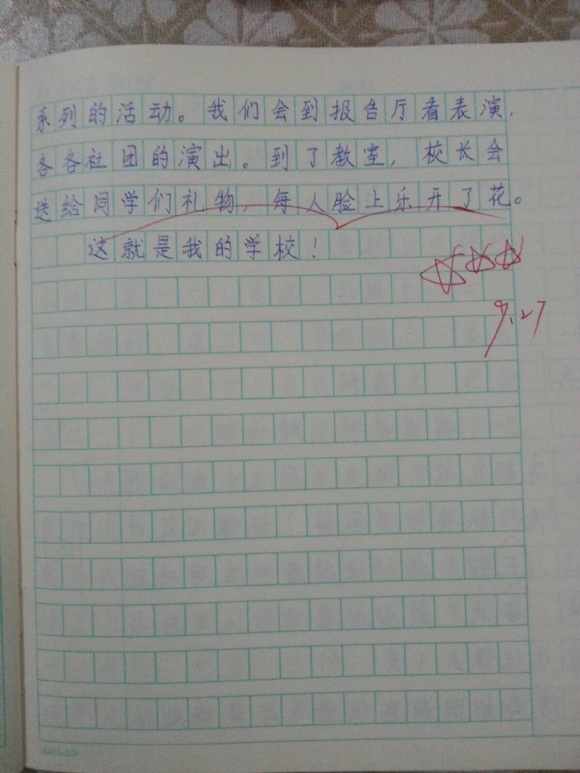 系列的活动。我们会到报告厅看表演.
各各社团的演出。到了教室，校长会
送给同学们礼物，每人脸上乐开了花。
这就是我的学校！
9.27